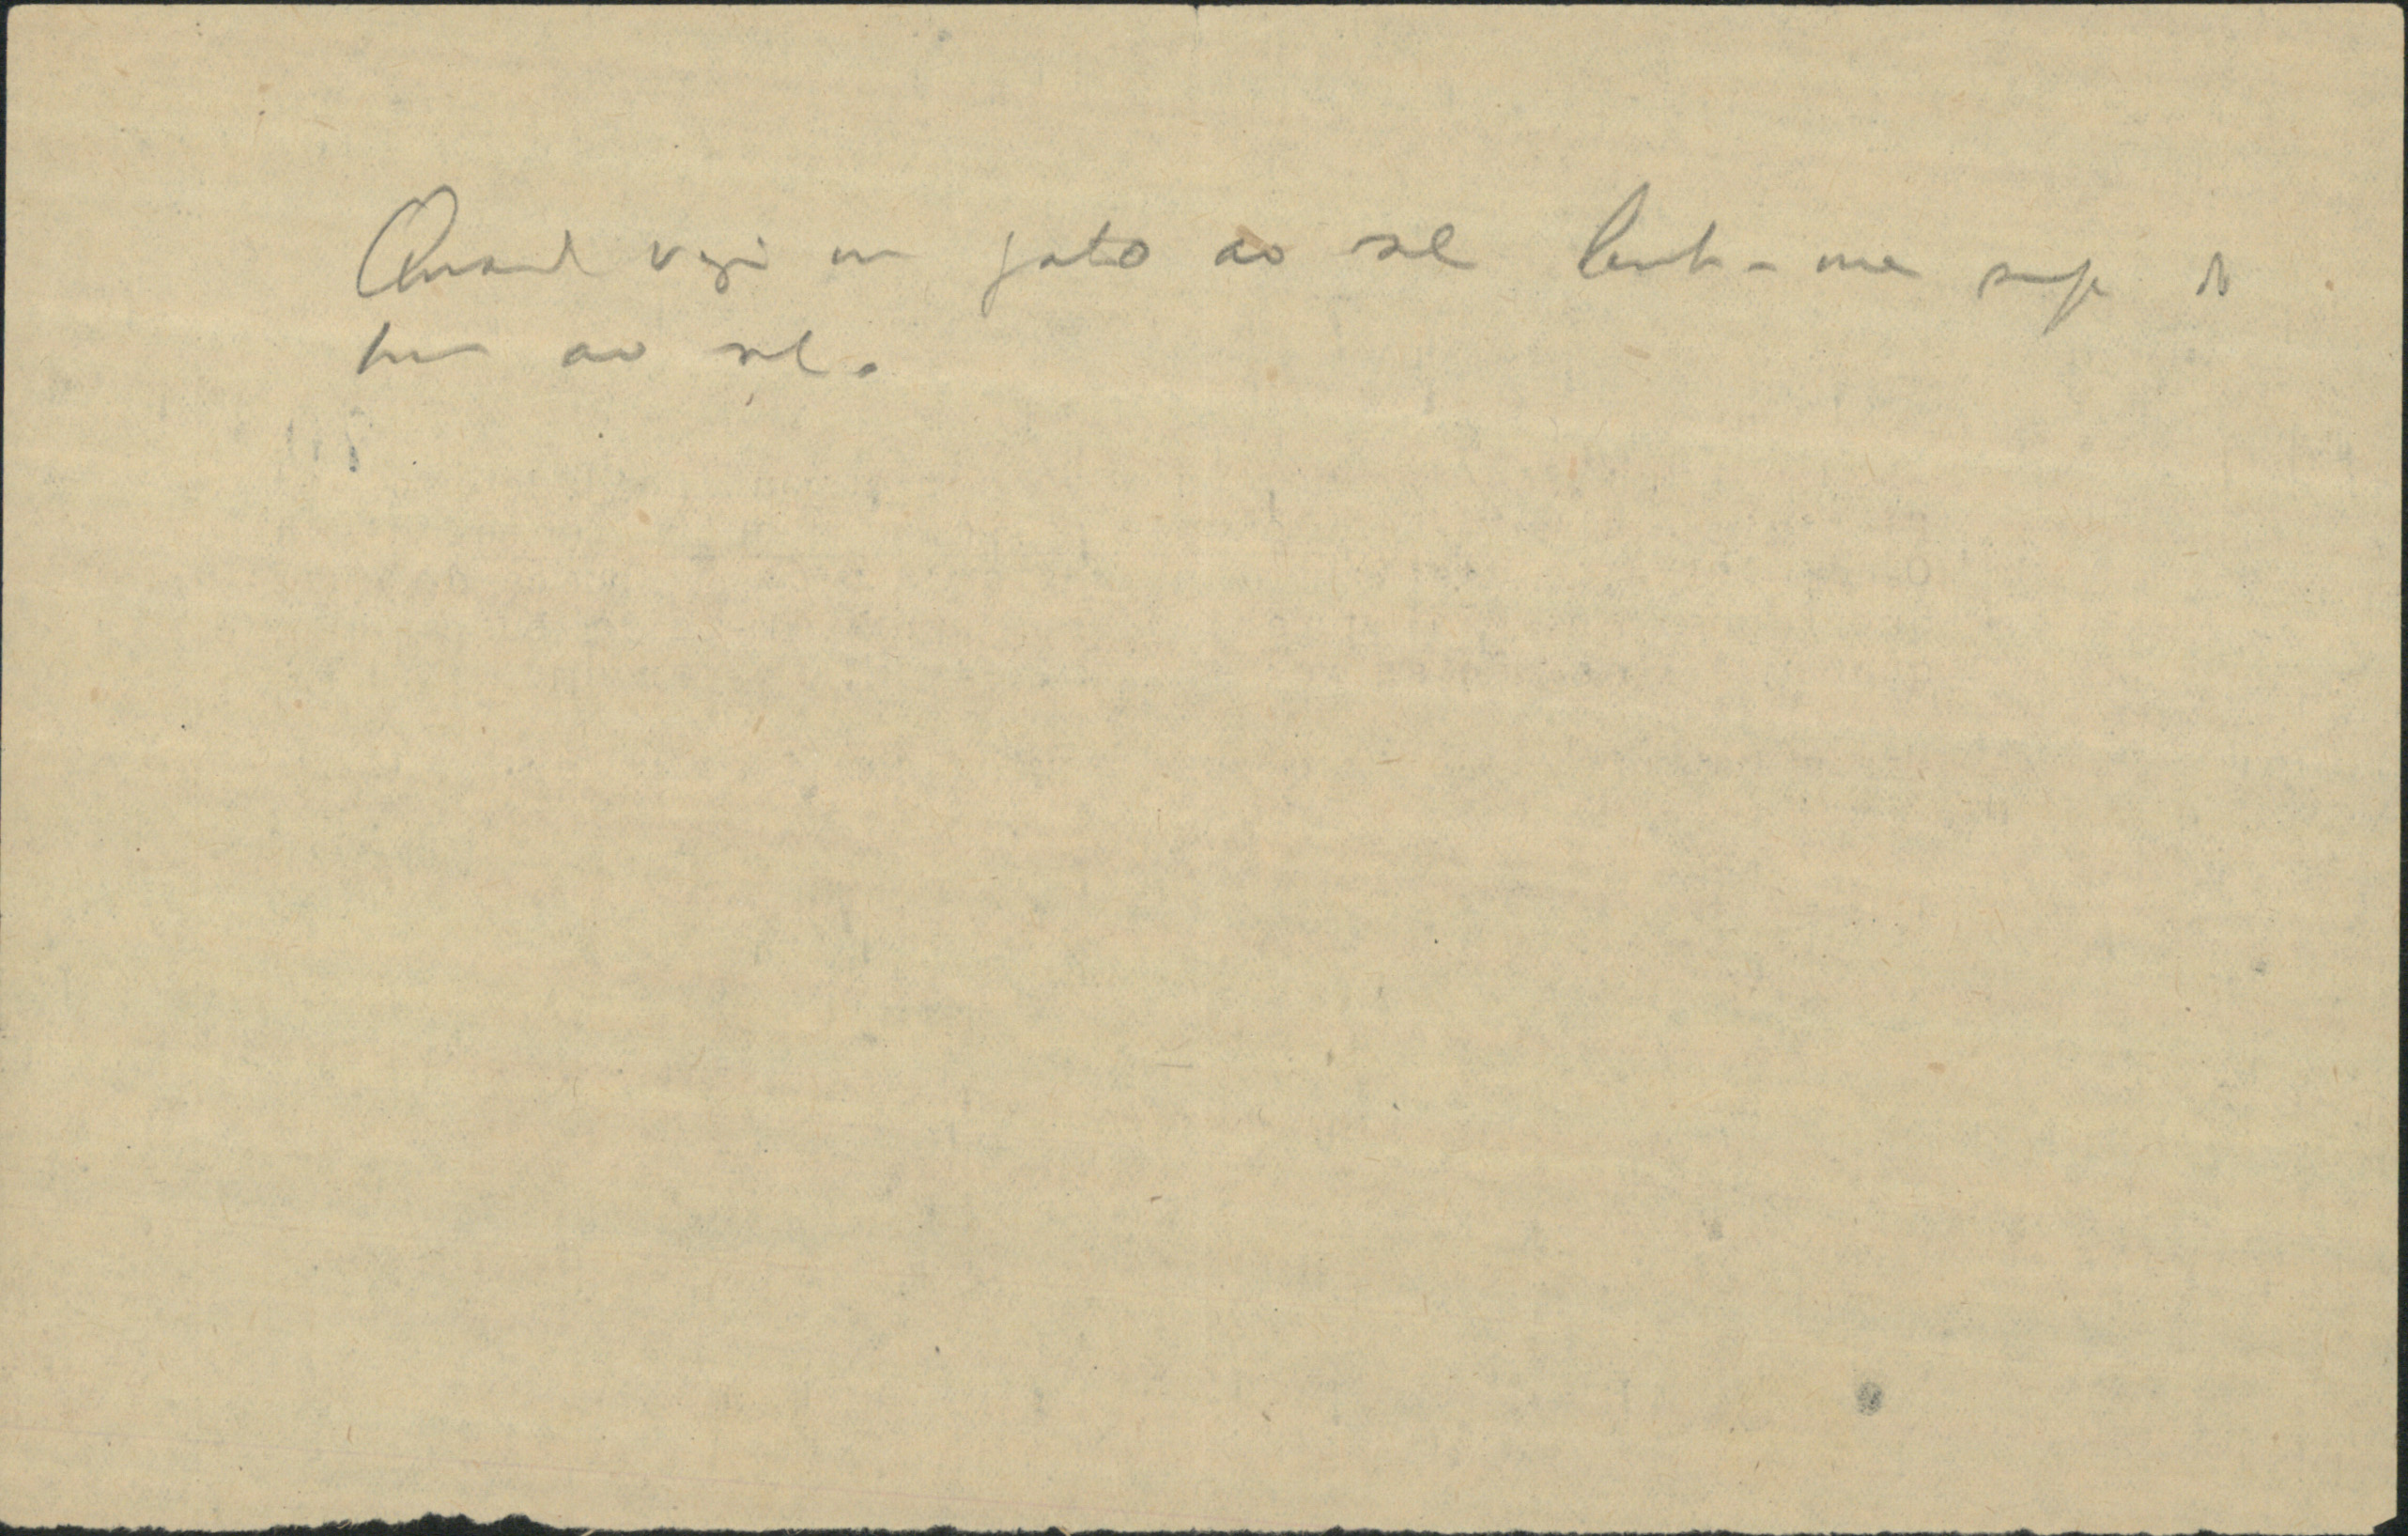 Quando vejo um gato ao sol lembra-me sempre do
homem ao sol.